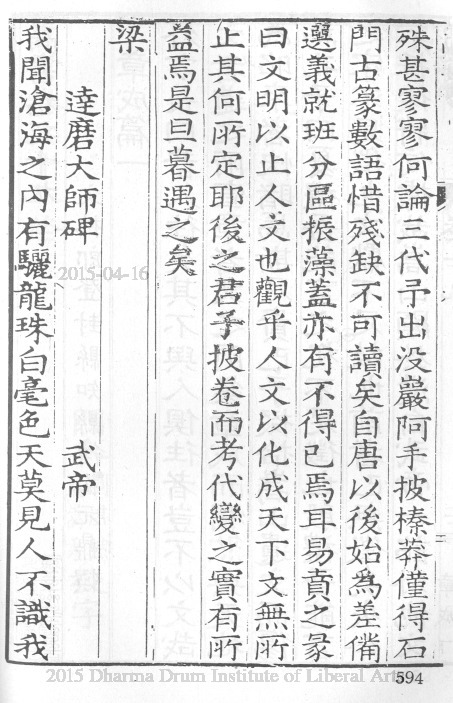 殊甚寥寥何論三代予出没巖阿手披榛莽僅得石
門古篆數語惜殘缺不可讀矣自唐以後始為差備
選義就班分區振藻蓋亦有不得已焉耳易賁之彖
曰文明以止人文也觀乎人文以化成天下文無所
止其何所定耶後之君子披卷而考代變之實有所
益焉是旦暮遇之矣
梁
達磨大師碑 武帝
我聞滄海之內有驪龍珠白毫色天莫見人不識我
2015-04-16
2015 Dharma Drum Institute of Liberal Arts
594